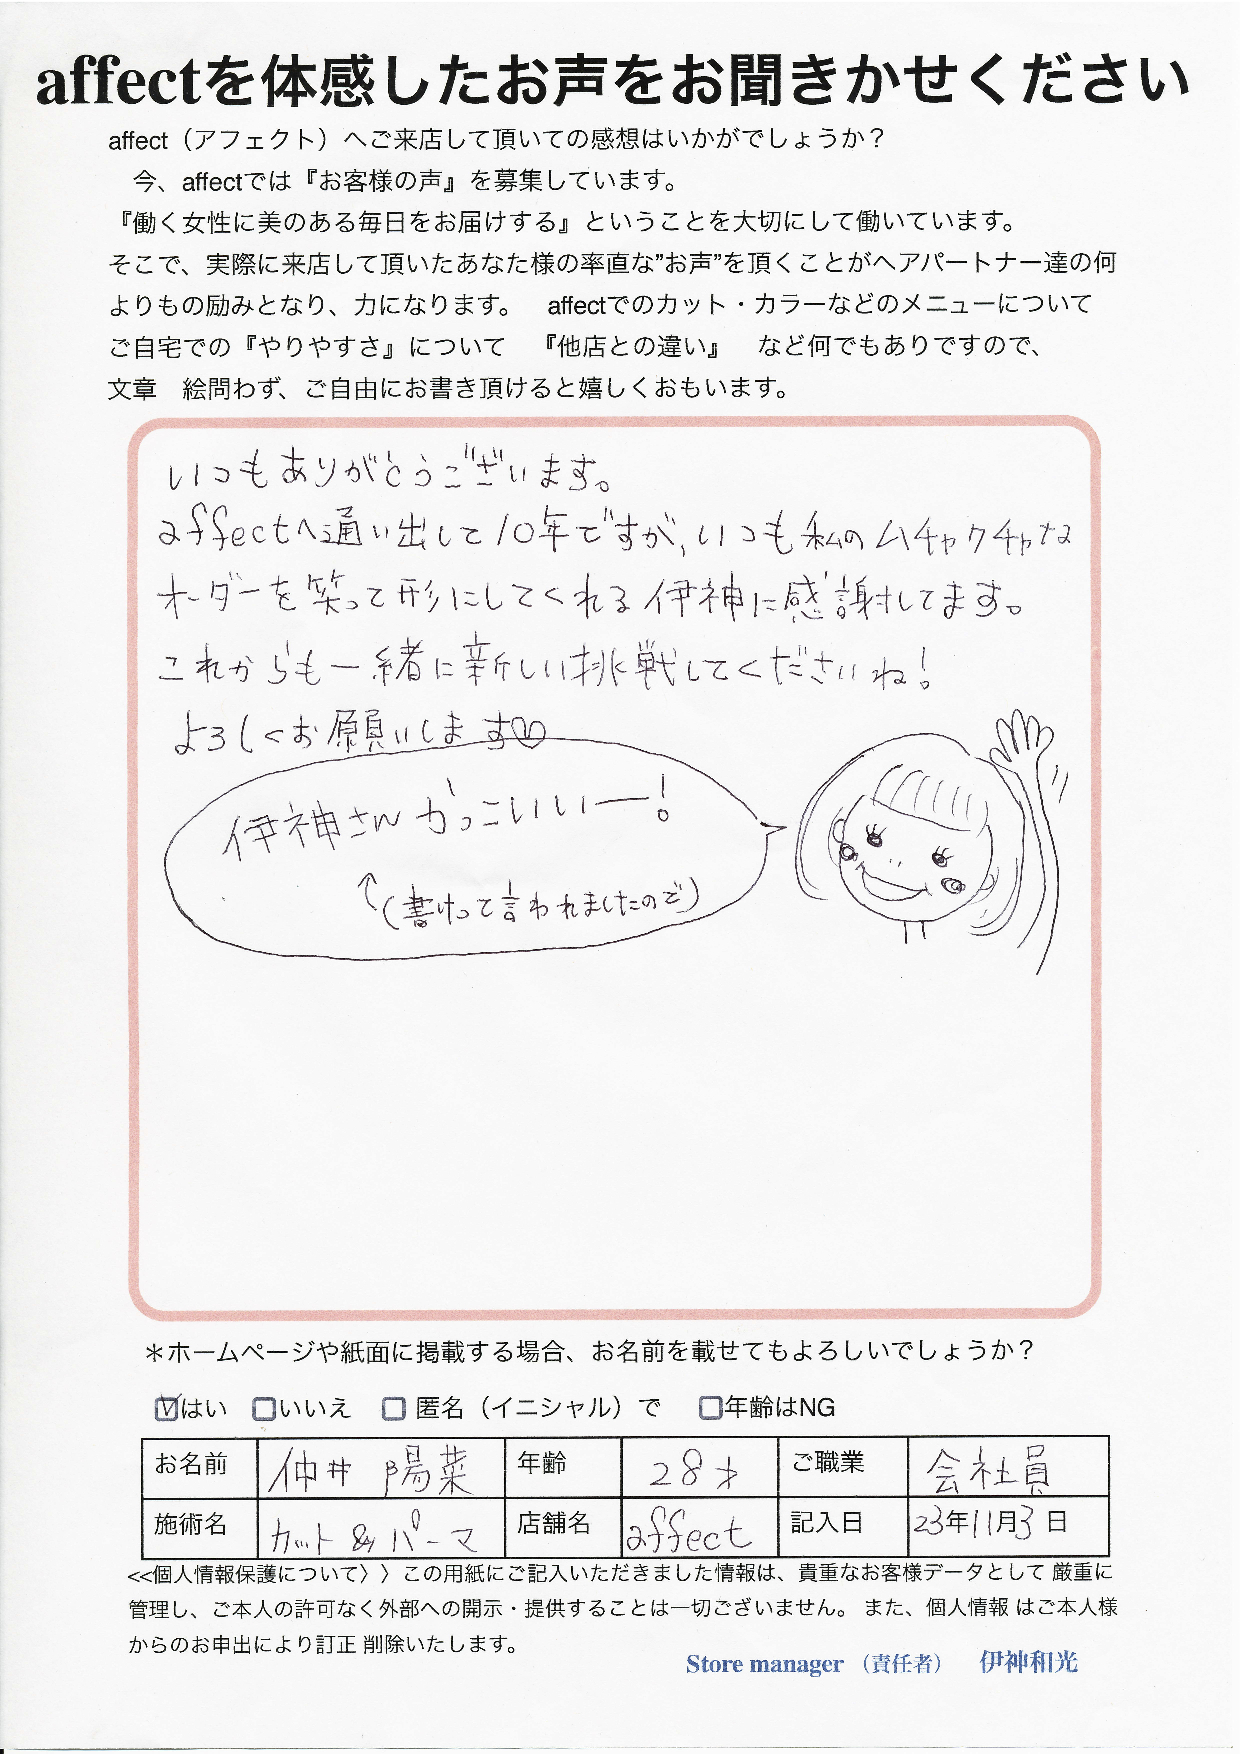 affectを体感したお声をお聞きかせください
affect（アフェクト）へご来店して頂いての感想はいかがでしょうか？
今、affectでは『お客様の声』を募集しています。
『働く女性に美のある毎日をお届けする』ということを大切にして働いています。
そこで、実際に来店して頂いたあなた様の率直な”お声”を頂くことがヘアパートナー達の何
よりもの励みとなり、力になります。　affectでのカット・カラーなどのメニューについて
ご自宅での『やりやすさ』について　『他店との違い』　など何でもありですので、
文章　絵問わず、ご自由にお書き頂けると嬉しくおもいます。
いつもありがとうございます。
affectへ通い出して10年ですが、いつも私のムチャクチャな
オーダーを笑って形にしてくれる伊神に感謝してます。
これからも一緒に新しい挑戦してくださいね！
よろしくお願いします♡
伊神さんかっこいいー！
↑(書けって言われましたので)
＊ホームページや紙面に掲載する場合、お名前を載せてもよろしいでしょうか？
☑はい　□いいえ　□ 匿名（イニシャル）で　□年齢はNG
お名前 仲井 陽菜 年齢 28才 ご職業 会社員
施術名 カット&パーマ 店舗名 affect 記入日 23年11月3日
<<個人情報保護について〉〉この用紙にご記入いただきました情報は、貴重なお客様データとして 厳重に
管理し、ご本人の許可なく外部への開示・提供することは一切ございません。 また、個人情報 はご本人様
からのお申出により訂正 削除いたします。
Store manager （責任者）　伊神和光